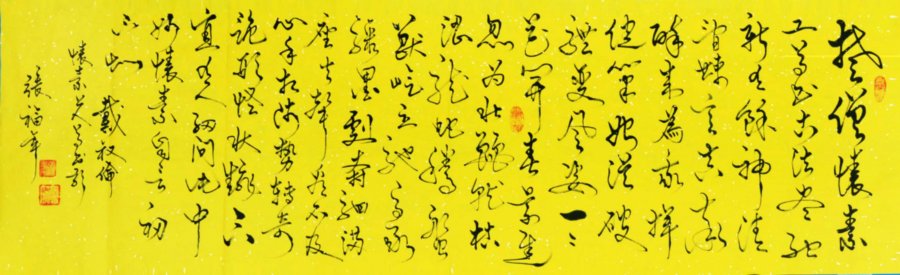 楚僧懷素
工草書古法盡能
新有餘神清
骨竦意真率
醉來為我揮
健筆始從破
體變風姿一一
花開春景遲
忽為壯麗就枯
澀龍蛇騰盤
獸屹立馳毫
驟墨劇奔駟滿
座失聲看不及
心手相師勢轉奇
詭形怪狀翻合
宜人人細問此中
妙懷素自言初
不知
戴叔倫
懷素上人草書歌
張福年